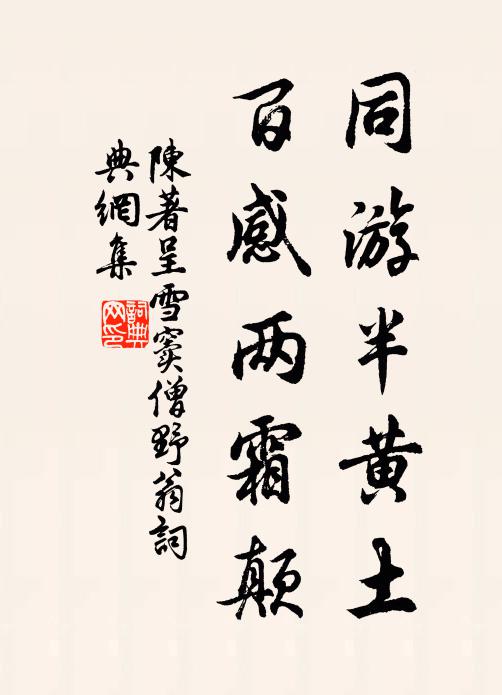 同游半黄土
百感两霜颠
陳著呈雪窦僧野翁詞
典網集
詞典
网印